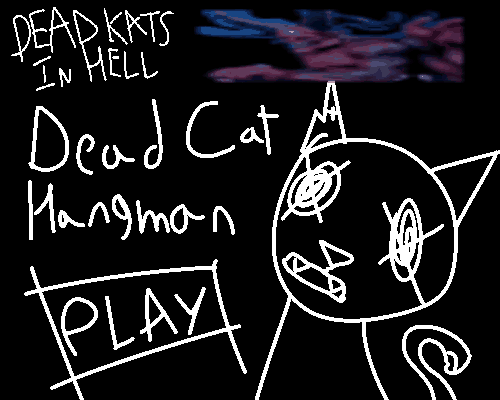 DEAD KATS
IN HELL
Dead Cat
Hangman
PLAY